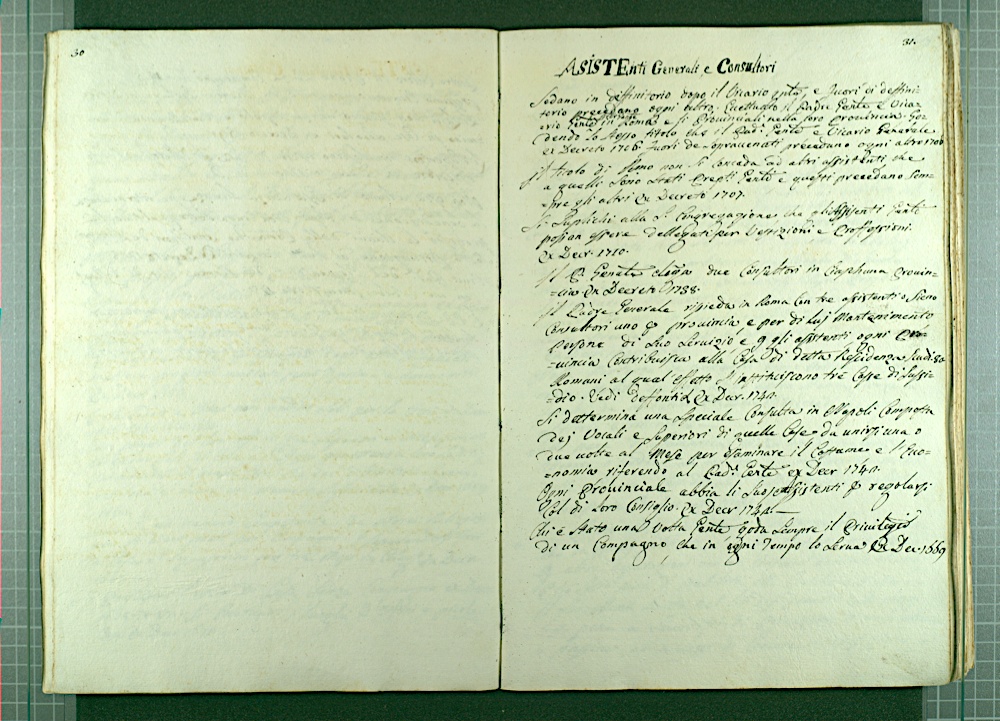 30
31.
ASISTEnti Generali, e Consultori
Sedano in diffinitorio dopo il Vicario Gnle, e fuori di diffini-
torio precedano ogni altro. Eccettuato il Padre Gente e Vica-
rio Gente in Roma e li Provinciali nella loro Provincia. Go-
dendo lo stesso titolo che il Pad: Gente e Vicario Generale
ex Decreto 1706. Fuori de sopravenati precedano ogni altro 1706
Il titolo di Rmo non si conceda ad altri assistenti, che
a quelli sono stati eletti Genti e questi precedano sem-
pre gli altri Ex Decreto 1707.
Si suplichi alla S. Congregazione che gli Assistenti Genti
possan essere dellegati per Vestizioni e Professioni.
Ex Decr. 1710.
Il P. Generale elegga due Consultori in ciascheduna Provin-
=cia. Ex Decreto 1738.
Il Padre Generale risieda in Roma con tre assistenti o sieno
Consultori uno p provincia e per di lui Mantenimento
persone di suo servizio e p gli asistenti ogni Pro-
=vincia Contribuisca alla Casa di detta Residenza Scudi 80
Romani al qual effetto s'instituiscono tre Casse di Sussi-
=dio. Vedi Ex Decr. 1741.
Si dettermina una speciale Consulta in Napoli Composta
dei Vocali e Superiori di quelle Case da unirsi una o
due volte al Mese per esaminare il Costume e l'Eco-
=nomia riferendo al Pad: Gente ex Decr 1741.
Ogni Provinciale abbia li suoi Asistenti p regolarsi
Col di loro Consiglio. Ex Decr 1741.—
Chi è stato una volta Gente goda sempre il Privilegio
di un Compagno, che in ogni tempo lo serva Ex Dec. 1669